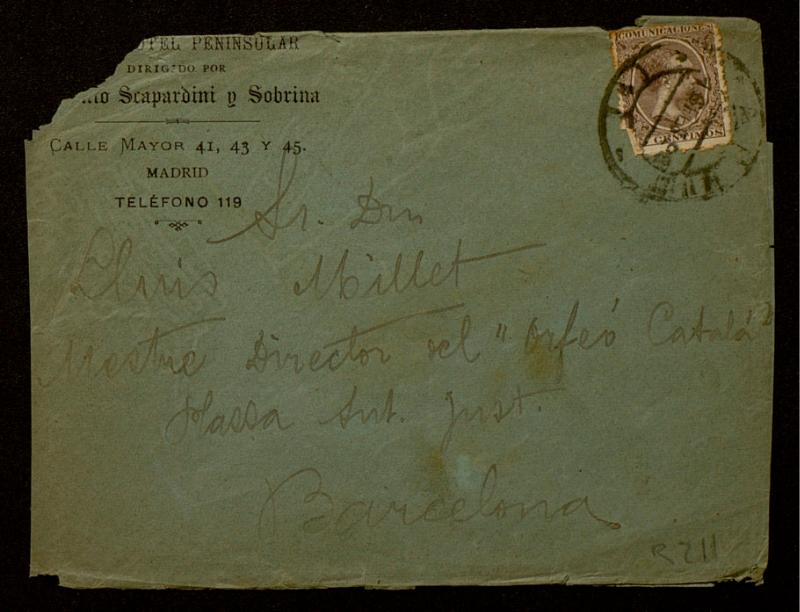 OTEL PENINSULAR
DIRIGIDO POR
Scapardini y Sobrina
CALLE MAYOR 41, 43 Y 45.
MADRID
TELÉFONO 119
COMUNICACIONES
CENTIMOS
Sr. Dn
Lluis Millet
Mestre Director del "Orfeó Català"
Plassa Snt. Just.
Barcelona
R 211